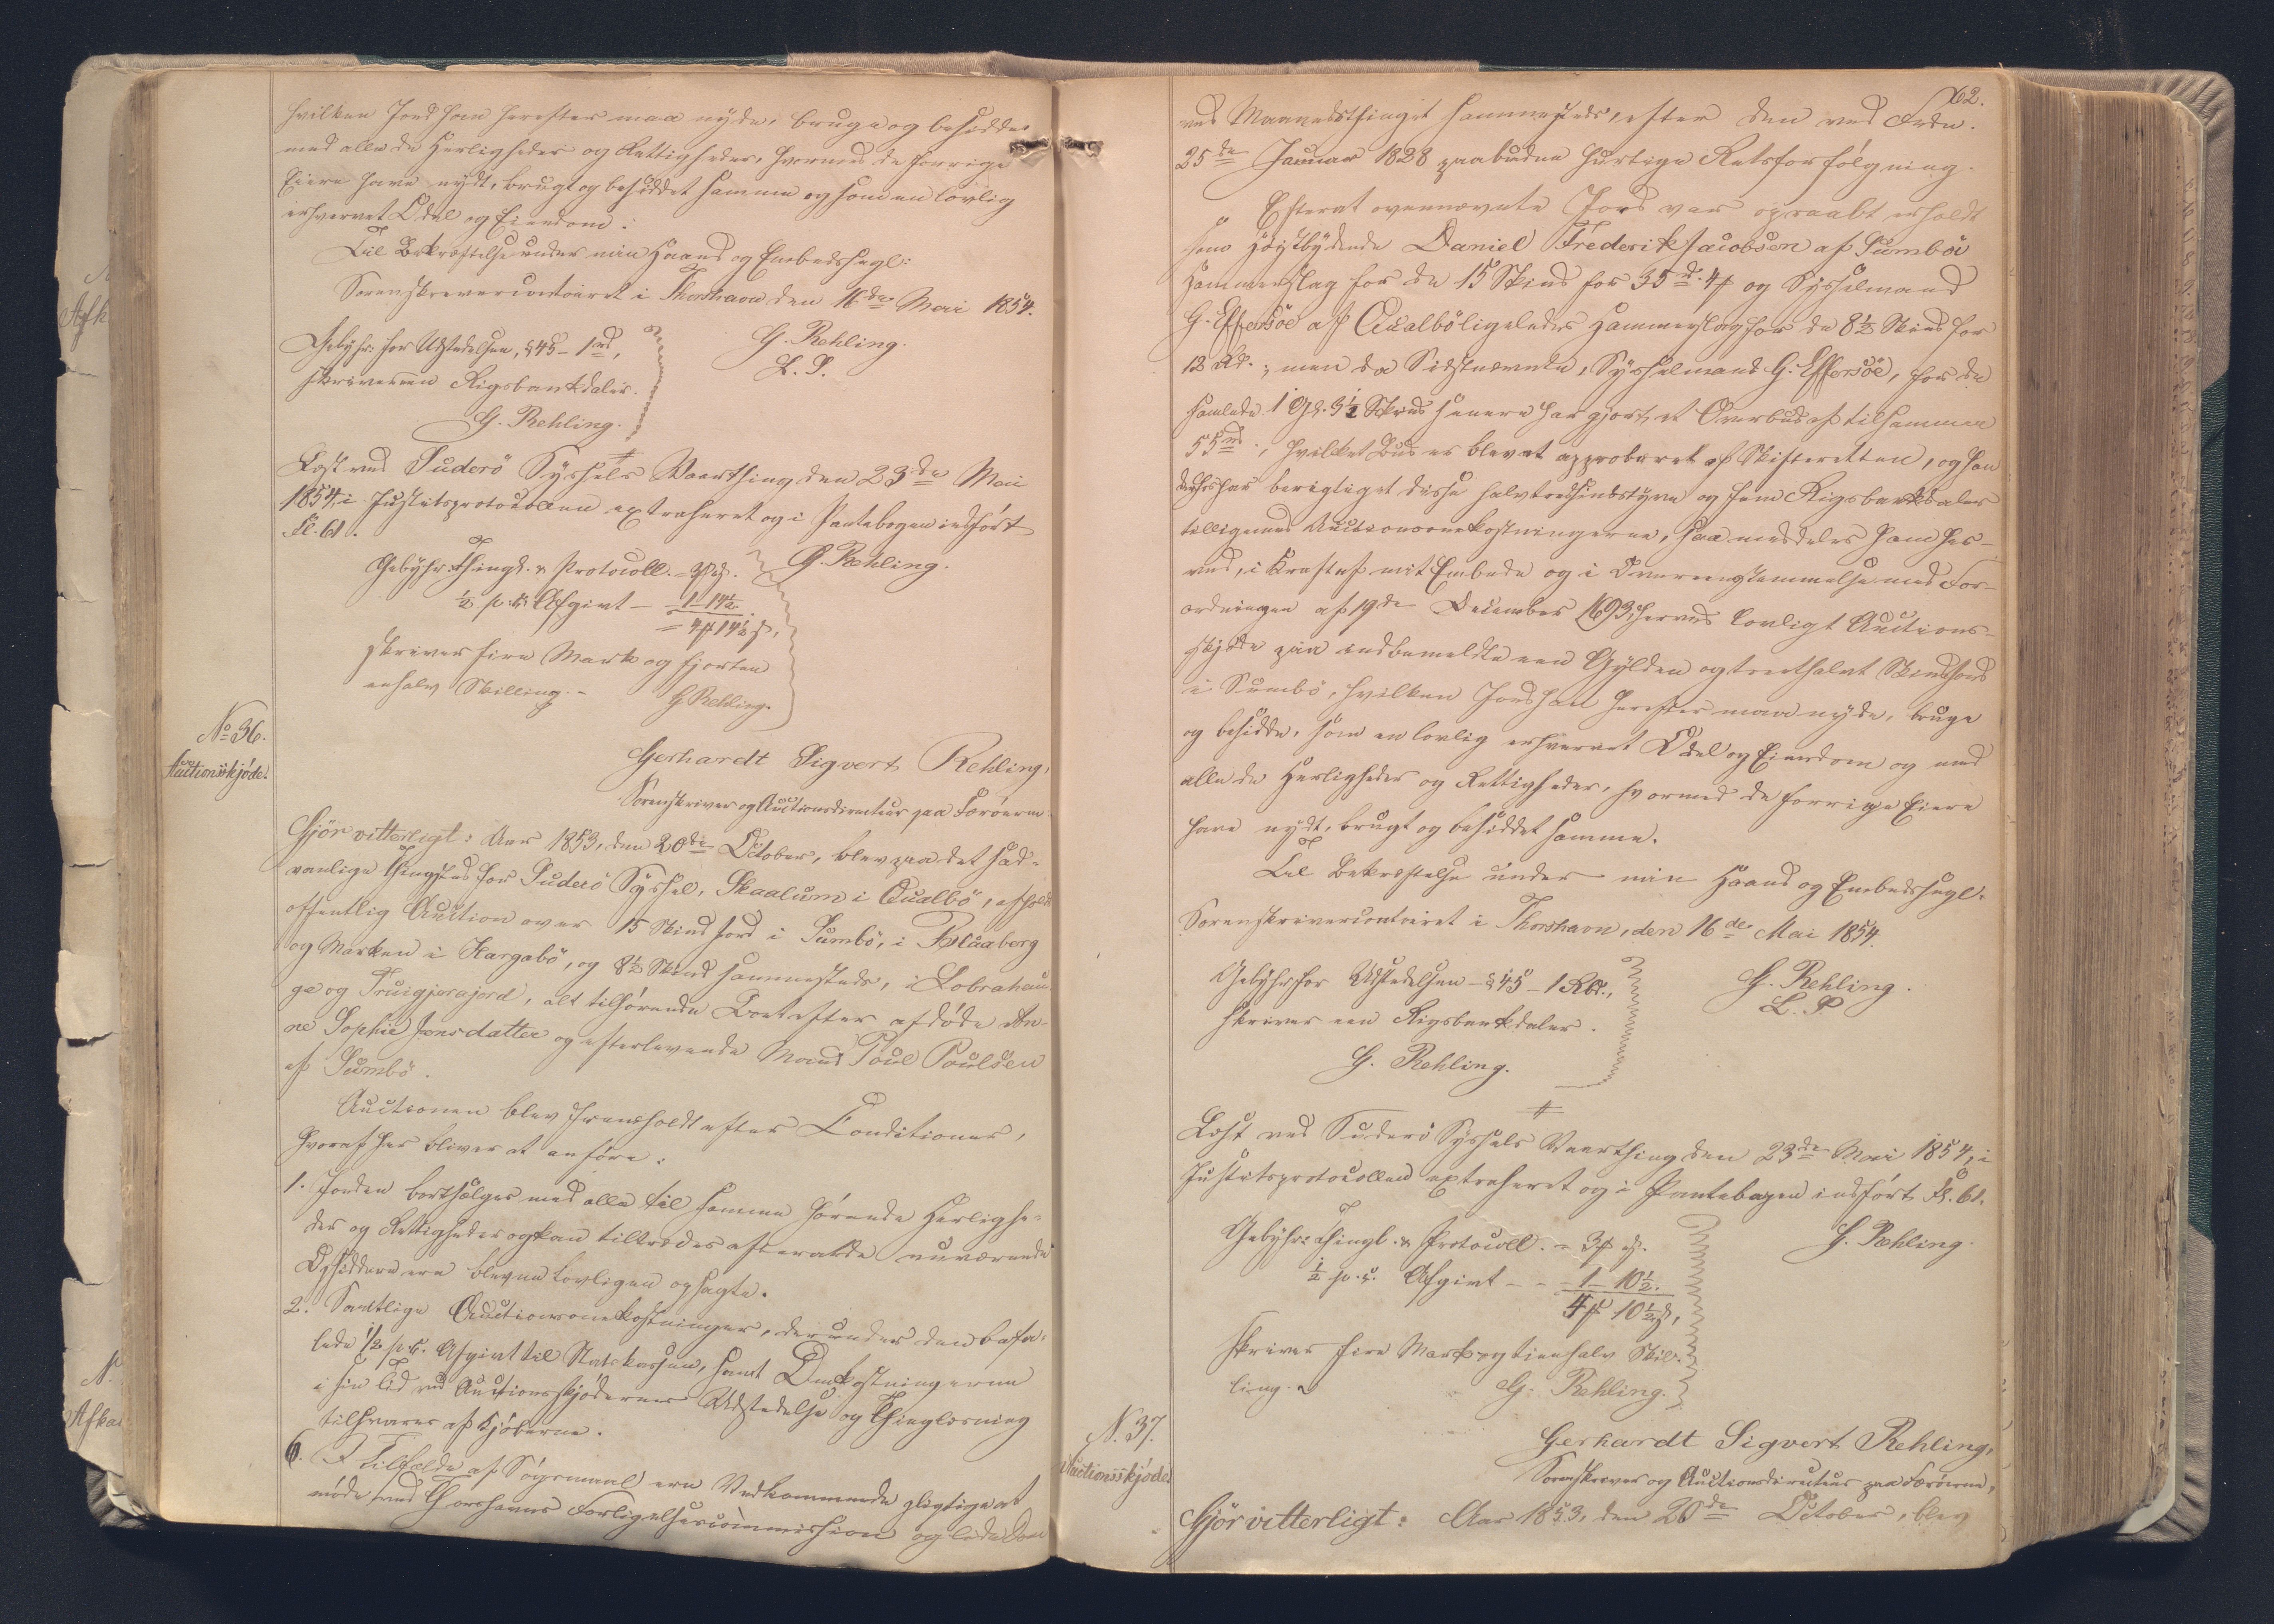 hvilken Jord han herefter maa nyde, bruge og besidde
med alle de Herligheder og Rettigheder, hvormed de forrige
Eiere have nydt, brugt og besiddet samme og som en lovlig
erhvervet Odel og Eiendom.
Til Bekræftelse under min Haand og Embedssegl:
Sorenskrivercontoiret i Thorshavn den 16de Mai 1854.
Gebyhr for Udstedelsen, § 45 – 1 rd,
skriver een Rigsbankdaler.
G. Rehling.
G. Rehling.
L. S.
Læst ved Suderö Syssels Vaarthing den 23de Mai
1854, i Justitsprotocollen extraheret og i Pantebogen indført
Fl. 61.
G. Rehling.
Gebyhr: Thingl. & Protocoll. = 3 ß.
½ p.C. Afgivt – 1 – 14½
= 4 14½ ß,
skriver fire Mark og fjorten
enhalv Skilling. –
G. Rehling.
No 36.
Auctionsskjöde.
Gerhardt Sigvert Rehling,
Sorenskriver og Auctionsdirecteur paa Færöerne
Gjör vitterligt: Aar 1853, den 20de October, blev paa det sæd-
vanlige Thingsted for Suderö Syssel, Skaalum i Qualbö, afholdt
offentlig Auction over 15 Skind Jord i Sumbö, i Blaaberg
og Marken i Hargabö, og 8½ Skind sammesteds, i Lobrahau-
ge og Truigjerajord, alt tilhörende Boet efter afdöde An-
ne Sophie Jensdatter og efterlevende Mand Poul Poulsen
af Sumbö.
Auctionen blev fremholdt efter Conditioner,
hvoraf her bliver at anföre:
1. Jorden bortsælges med alle til samme hörende Herlighe-
der og Rettigheder og kan tiltrædes efterat de nuværende
Opsiddere ere blevne lovligen opsagte.
2. Samtlige Auctionsomkostninger, derunder den befa-
lede 1/2 p.C. Afgivt til Statskassen, samt Omkostningerne
i sin Tid ved Auctionsskjödernes Udstedelse og Thinglæsning
tilsvares af Kjöberne.
6. I Tilfælde af Sögsmaal ere Vedkommende pligtige at
møde ved Thorshavns Forligelsescommission og lide Dom
62.
ved Maanedsthinget sammesteds, efter den ved Frdn.
25de Januar 1828 paabudne hurtige Retsforfölgning.
Efterat ovennævnte Jord var opraabt erholdt
som höistbydende Daniel Frederik Jacobsen af Sumbö
Hammerslag for de 15 Skind for 35 rd. 4 og Sysselmand
G. Effersöe af Qualbö ligeledes Hammerslag for de 8½ Skind for
12 Rd.; men da Sidstnævnte, Sysselmand G. Effersöe, for de
samlede 1 Gl. 3½ Skind senere har gjort et Overbud af tilsammen
55 rd., hvilket Bud er blevet approberet af Skifteretten, og han
derhos har berigtiget disse halvtredsindstyve og fem Rigsbankdaler
tilligemed Auctionsomkostningerne, saa meddeles ham her-
ved, i Kraft af mit Embede og i Overeensstemmelse med For-
ordningen af 19de December 1693 herved lovligt Auctions-
skjöde paa endbemeldte een Gylden og trethalvt Skind Jord
i Sumbö, hvilken Jord han herefter maa nyde, bruge
og besidde, som en lovlig erhvervet Odel og Eiendom og med
alle de Herligheder og Rettigheder, hvormed de forrige Eiere
have nydt, brugt og besiddet samme.
Til Bekræftelse under min Haand og Embedssegl.
Sorenskrivercontoiret i Thorshavn, den 16de Mai 1854.
Gebyhr for Udstedelsen – § 45 – 1 Rbd.,
skriver een Rigsbankdaler.
G. Rehling.
G. Rehling.
L. S.
Læst ved Suderö Syssels Vaarthing den 23de Mai 1854, i
Justitsprotocollen extraheret og i Pantebogen indført Fl. 61.
G. Rehling.
Gebyhr: Thingl. & Protocoll. = 3 ß.
½ p.C. Afgivt – – 1 – 10½.
4 10½ ß,
skriver fire Mark og tienhalv Skil-
ling.
G. Rehling.
N. 37.
Auctionsskjöde.
Gerhardt Sigvert Rehling,
Sorenskriver og Auctionsdirecteur paa Færöerne,
Gjör vitterligt: Aar 1853, den 20de October, blev